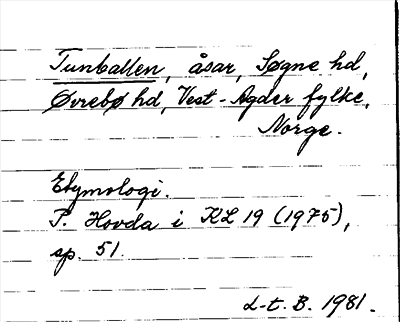 Tunballen, åsar, Søgne hd,
Øvrebø hd, Vest-Agder fylke,
Norge.
Etymologi.
P. Hovda i KL 19 (1975),
sp. 51.
L-t. B. 1981.